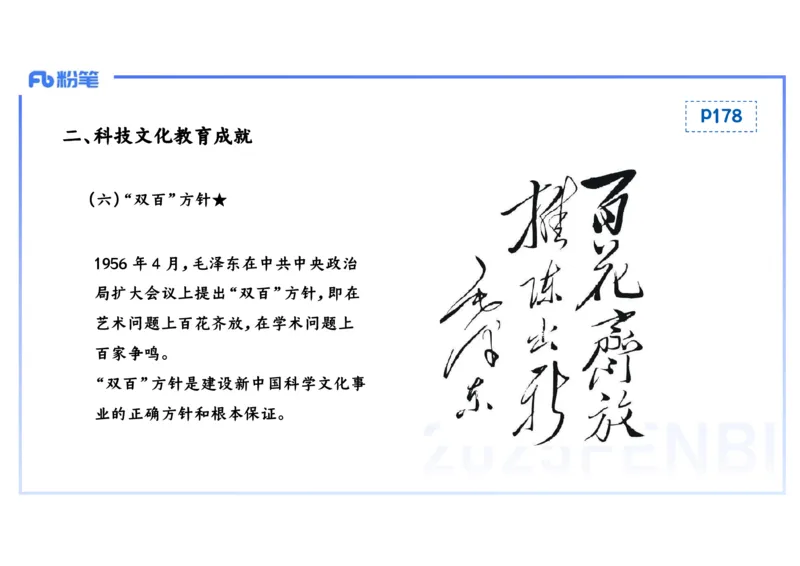 粉笔
P178
二、科技文化教育成就
(六)“双百”方针★
1956 年 4 月,毛泽东在中共中央政治
局扩大会议上提出“双百”方针,即在
艺术问题上百花齐放,在学术问题上
百家争鸣。
“双百”方针是建设新中国科学文化事
业的正确方针和根本保证。
百花齊放
推陈出新
毛泽东
2025FENBI